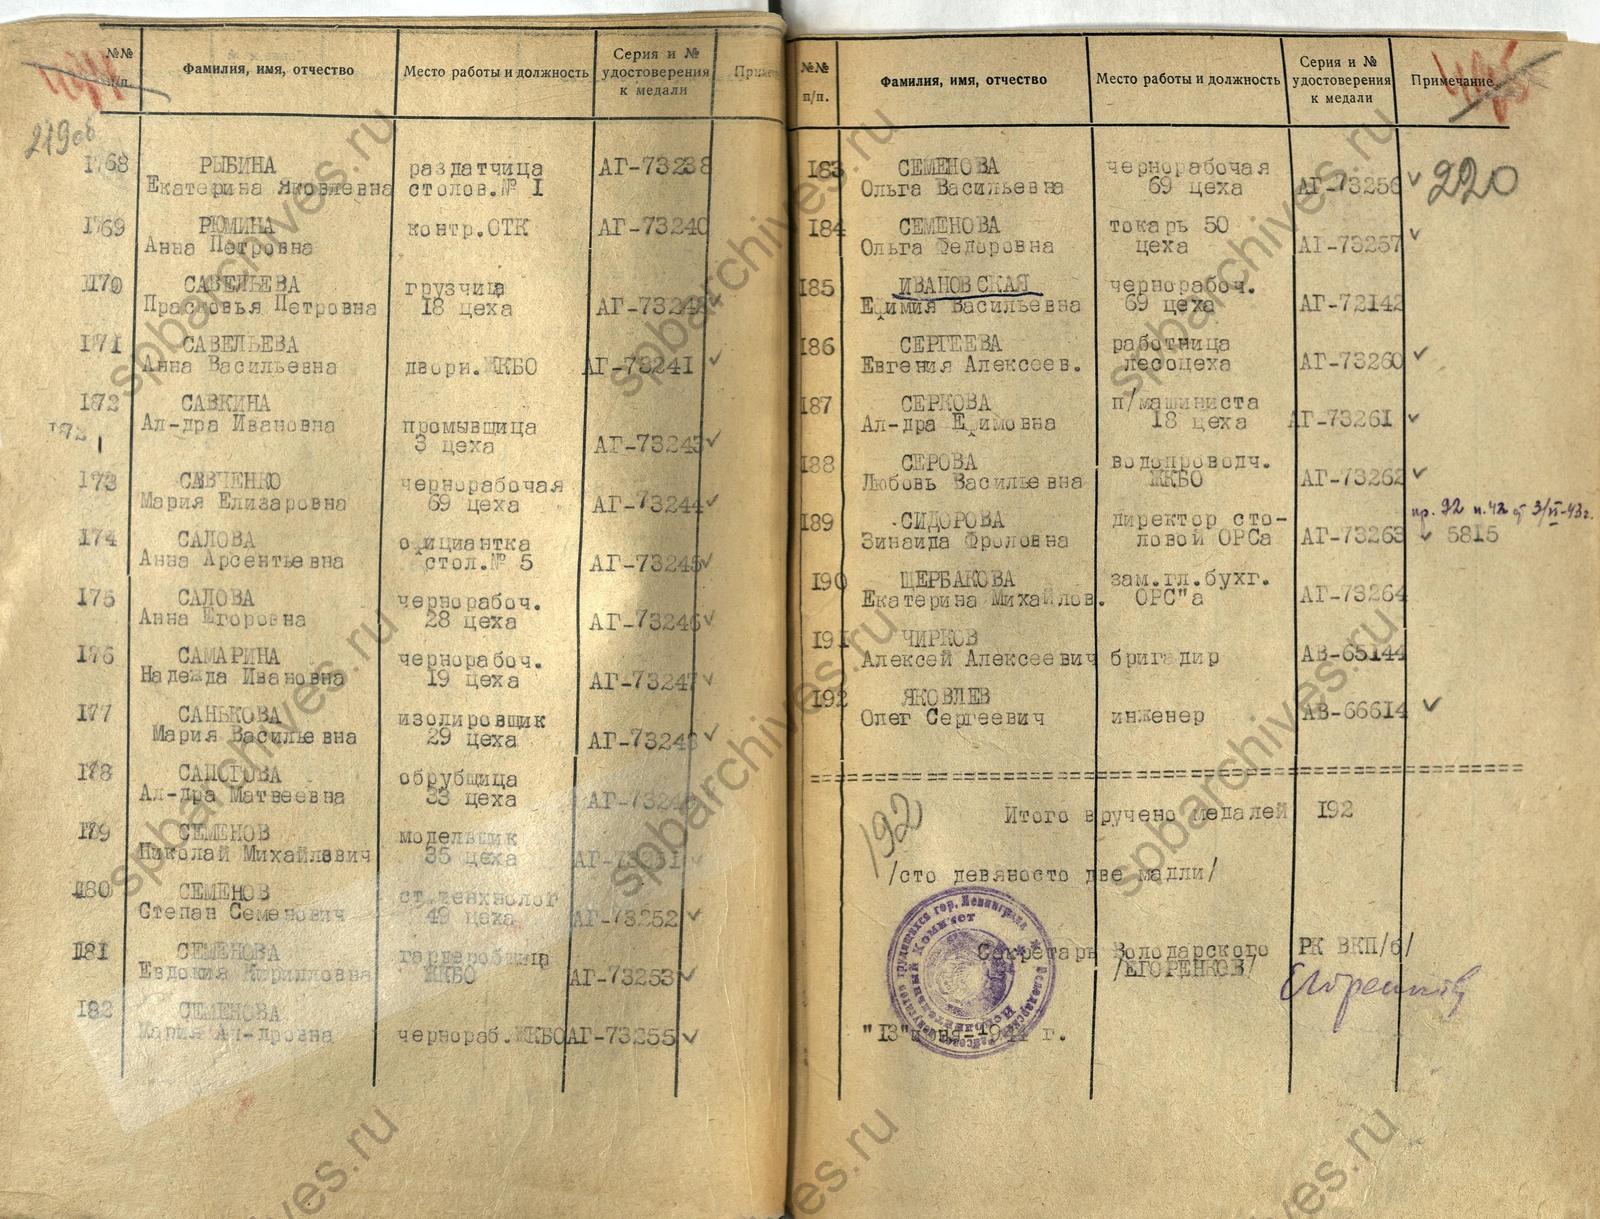 №№ п/п.
Фамилия, имя, отчество
Место работы и должность
Серия и № удостоверения к медали
219об
168 РЫБИНА раздатчица АГ-73238
Екатерина Яковлевна столов.№ I
169 РЮМИНА контр.ОТК АГ-73240
Анна Петровна
170 САВЕЛЬЕВА грузчица
Прасковья Петровна 18 цеха
171 САВЕЛЬЕВА
Анна Васильевна дворн. ЖКБО АГ-73241 ✓
172 САВКИНА
Ал-дра Ивановна промывщица
3 цеха АГ-73243 ✓
173 САВЧЕНКО чернорабочая
Мария Елизаровна 69 цеха АГ-73244 ✓
174 САЛОВА официантка
Анна Арсентьевна стол.№ 5 АГ-73245 ✓
175 САЛОВА чернорабоч.
Анна Егоровна 28 цеха АГ-73246 ✓
176 САМАРИНА чернорабоч.
Надежда Ивановна 19 цеха АГ-73247 ✓
177 САНЬКОВА изолировщик
Мария Васильевна 29 цеха АГ-73248 ✓
178 САПОГОВА обрубщица
Ал-дра Матвеевна 33 цеха
179 СЕМЕНОВ модельщик
Николай Михайлович 35 цеха АГ-73251 ✓
I80 СЕМЕНОВ
Степан Семенович 49 цеха АГ-73252 ✓
I81 СЕМЕНОВА гардеробщица
Евдокия Кирилловна ЖКБО АГ-73253 ✓
182 СЕМЕНОВА
Мария Ал-дровна чернораб. ЖКБО АГ-73255 ✓
№№ п/п.
Фамилия, имя, отчество
Место работы и должность
Серия и № удостоверения к медали
Примечание
220
I83 СЕМЕНОВА чернорабочая
Ольга Васильевна 69 цеха АГ-73256 ✓
I84 СЕМЕНОВА токарь 50
Ольга Федоровна цеха АГ-73257 ✓
I85 ИВАНОВСКАЯ чернорабоч.
Ефимия Васильевна 69 цеха АГ-72142
I86 СЕРГЕЕВА работница
Евгения Алексеев. лесоцеха АГ-73260 ✓
I87 СЕРКОВА п/машиниста
Ал-дра Ефимовна I8 цеха АГ-73261 ✓
I88 СЕРОВА водопроводч.
Любовь Васильевна ЖКБО АГ-73262 ✓
пр. 92 п.42 от 3/VI-43г.
I89 СИДОРОВА директор сто-
Зинаида Фроловна ловой ОРСа АГ-73263 ✓ 5815
I90 ЩЕРБАКОВА зам.гл.бухг.
Екатерина Михайлов. ОРС"а АГ-73264
I91 ЧИРКОВ
Алексей Алексеевич бригадир АВ-65144
I92 ЯКОВЛЕВ
Олег Сергеевич инженер АВ-66614 ✓
Итого вручено медалей I92
192
/сто девяносто две мадли/
Секретарь Володарского РК ВКП/б/
/ЕГОРЕНКОВ/
Егоренков
"I3"
г.
Исполнительный Комитет
spbarchives.ru